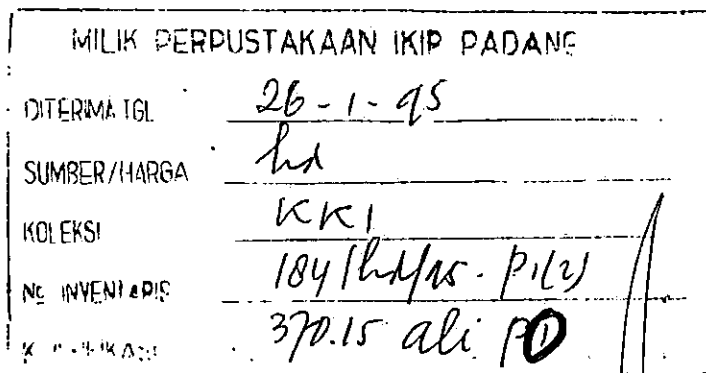 MILIK PERPUSTAKAAN IKIP PADANG
DITERIMA TGL 26-1-95
SUMBER/HARGA hd
KOLEKSI KKI
No INVENTARIS 184/hd/95-P1(2)
KLASIFIKASI 370.15 ali p